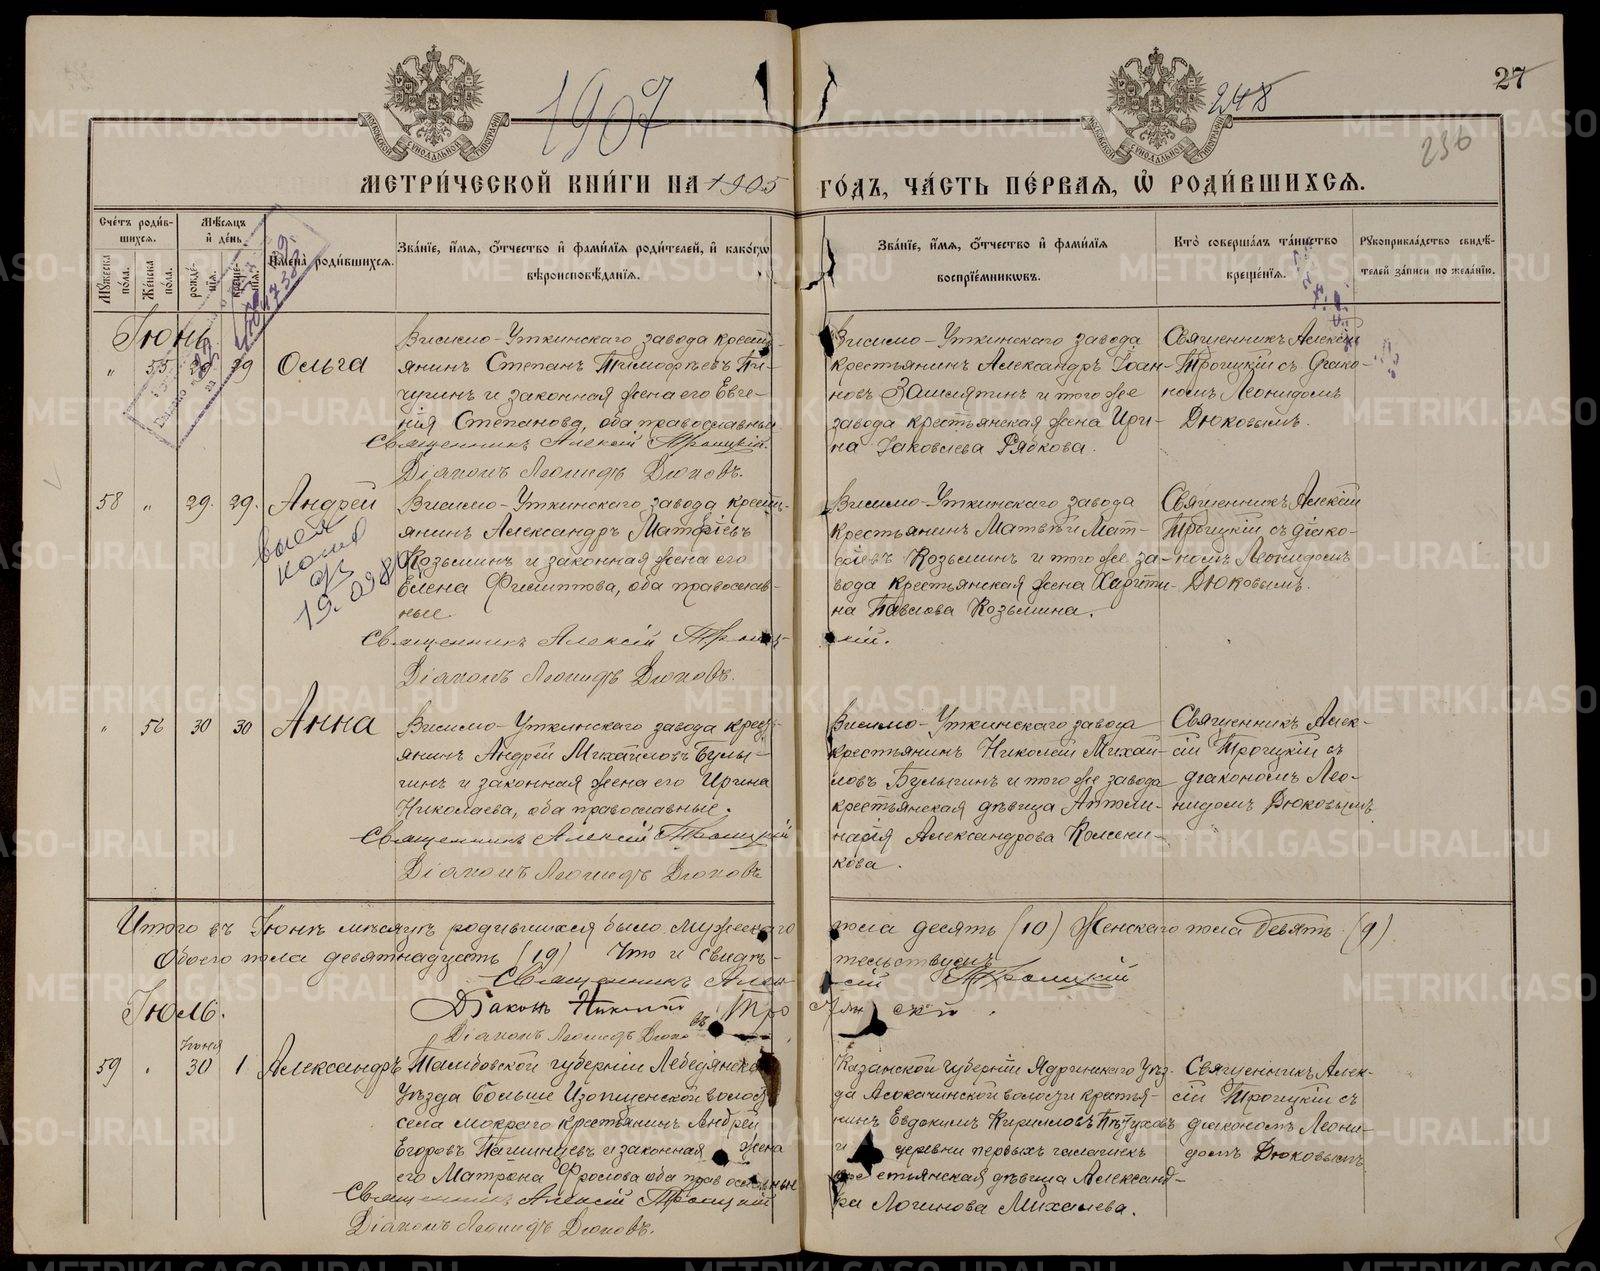 1907
248
27
236
МЕТРИ́ЧЕСКОЙ КНИ́ГИ НА 1905 ГО́ДЪ, ЧА́СТЬ ПЕ́РВАЯ, Ѡ РОДИ́ВШИХСЯ.
Сче́тъ роди́в-
шихся.
Мѣ́сяцъ
и҆ де́нь
Мꙋ́жеска по́ла.
Же́нска по́ла.
рожде́-
нїѧ.
креще́-
нїѧ.
И҆мена̀ роди́вшихся.
Зва́нїе, и҆́мѧ, ѻ҆́тчество и҆ фами́лїѧ роди́телей, и҆ како́гѡ
вѣроисповѣ́данїѧ.
Зва́нїе, и҆́мѧ, ѻ҆́тчество и҆ фами́лїѧ
воспрїе́мниковъ.
Кто̀ соверша́лъ та́инство
креще́нїѧ.
Рꙋкоприкла́дство свидѣ́-
телей за́писи по жела́нїю.
Іюнь
" 55 29 29 Ольга
Висимо-Уткинскаго завода крест-
янинъ Степанъ Тимофѣевъ Пи-
чугинъ и законная жена его Евге-
нія Степанова, оба православные
Священникъ Алексій Троицкій.
Діаконъ Леонидъ Дюковъ.
Висимо-Уткинскаго завода
крестьянинъ Александръ Іоан-
новъ Замятинъ и того же
завода крестьянская жена Ири-
на Іаковлева Рябкова.
Священникъ Алексій
Троицкій съ діако-
номъ Леонидомъ
Дюковымъ.
58 " 29. 29. Андрей
копия
19.
Висимо-Уткинскаго завода крест-
янинъ Александръ Матфіевъ
Козьминъ и законная жена его
Елена Филиппова, оба православ-
ные.
Священникъ Алексій Троиц-
кій.
Діаконъ Леонидъ Дюковъ.
Висимо-Уткинскаго завода
крестьянинъ Матвѣй Мат-
фіевъ Козьминъ и того же за-
вода крестьянская жена Харити-
на Павлова Козьмина.
Священникъ Алексій
Троицкій съ діако-
номъ Леонидомъ
Дюковымъ.
" 56 30 30 Анна
Висимо-Уткинскаго завода крест-
янинъ Андрей Михаиловъ Булы-
гинъ и законная жена его Ирина
Николаева, оба православные.
Священникъ Алексій Троицкій
Діаконъ Леонидъ Дюковъ
Висимо-Уткинскаго завода
крестьянинъ Николай Михаи-
ловъ Булыгинъ и того же завода
крестьянская дѣвица Аполли-
нарія Александрова Колесни-
кова.
Священникъ Алек-
сій Троицкій съ
діакономъ Лео-
нидомъ Дюковымъ
Итого въ Іюнѣ мѣсяцѣ родившихся было мужескаго пола десять (10) Женскаго пола девять (9)
Обоего пола девятнадцать (19) Что и свидѣ- тельствуемъ
Священникъ Алексій Троицкій
Діаконъ
Діаконъ Леонидъ Дюковъ
Іюль.
Іюня
59 " 30 1 Александръ
Тамбовской губерніи Лебедянска
уѣзда Больше Избищенской волос
села Мокраго крестьянинъ Андрей
Егоровъ и законная жена
его Матрона Фролова оба православные
Священникъ Алексій Троицкій
Діаконъ Леонидъ Дюковъ.
Казанской губерніи Ядринскаго уѣз-
да Асокачинской волости крестья-
нинъ Евдокимъ Кирилловъ Пѣтуховъ
и деревни первыхъ
крестьянская дѣвица Александ-
ра Логинова Михалева.
Священникъ Алек-
сій Троицкій съ
діакономъ Леони-
домъ Дюковымъ
METRIKI.GASO-URAL.RU